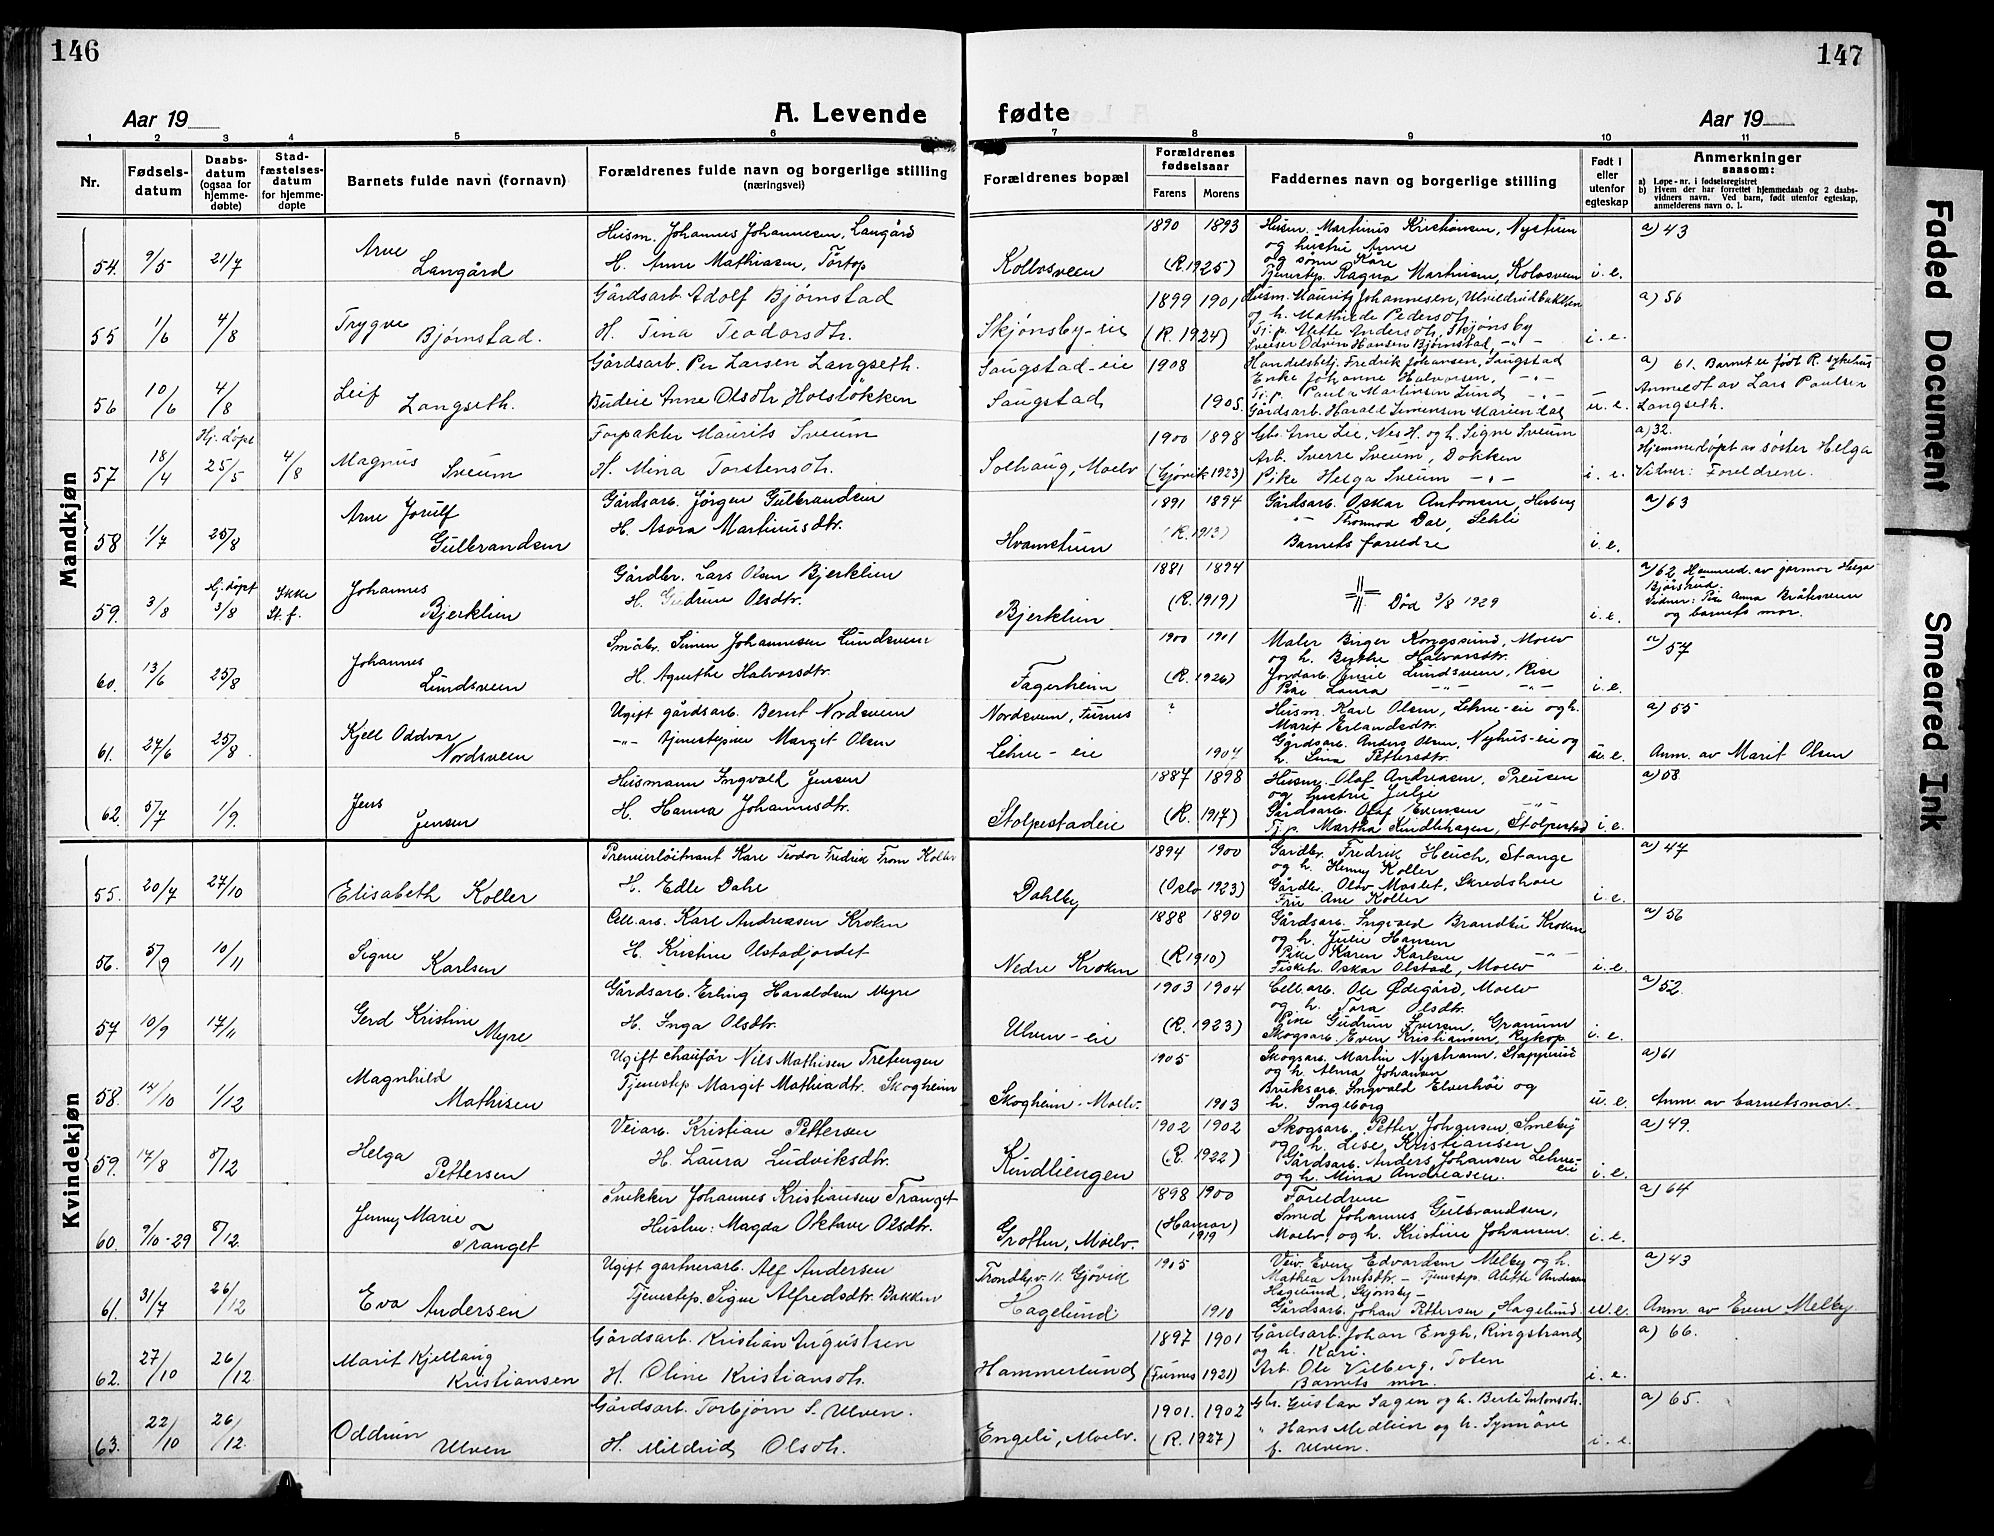 146
147
Aar 19
A. Levende
fødte
Aar 19
1 2 3 4 5 6 7 8 9 10 11
Nr.
Fødsels-
datum
Daabs-
datum
(ogsaa for
hjemme-
døbte)
Stad-
fæstelses-
datum
for hjemme-
døpte
Barnets fulde navn (fornavn)
Forældrenes fulde navn og borgerlige stilling
(næringsvei)
Forældrenes bopæl
Forældrenes
fødselsaar
Farens Morens
Faddernes navn og borgerlige stilling
Født i
eller
utenfor
egteskap
Anmerkninger
saasom:
a) Løpe-nr. i fødselsregistret
b) Hvem der har forrettet hjemmedaab og 2 daabs-
vidners navn. Ved barn, født utenfor egteskap,
anmelderens navn o. l.
Mandkjøn
54. 9/5 21/7
Arne
Langård
Husm. Johannes Johannesen, Langård
H. Anne Mathiasen, Törtop
Kolbosveen
1890 1893
(R. 1925)
Husm. Martinus Kristiansen, Nystuen
og hustru Anne
og sønn Kåre
Tjenestep. Ragna Martinsen, Kolosveen
i. e.
a) 43
55 1/6 4/8
Trygve
Bjørnstad.
Gårdsarb. Adolf Bjørnstad
H. Tina Teodorsdtr.
Skjønsby-eie
1899 1901
(R. 1924)
Husm. Mauritz Johannesen, Ulvildrudbakken
og h. Mathilde Pedersdtr.
Tj. p. Alette Andersdtr. Skjønsby
Sveiser Odvin Hansen Bjørnstad, -"-
i. e.
a) 56
56 10/6 4/8
Leif
Langseth.
Gårdsarb. Per Larsen Langseth.
Budeie Anne Olsdtr Holsløkken
Saugstad-eie
Saugstad
1908
1905.
Handelsbetj. Fredrik Johansen, Saugstad
Enke Johanne Halvorsen, -"-
Tj. p. Paul Martinsen Lund -"-
Gårdsarb. Harald Simensen Mariendal
u. e.
a) 61. Barnet er født R. sykehus
Anmeldt av Lars Paulsen
Langseth.
57 18/4
Hj. døpt
25/5 4/8
Magnus
Sveum
Forpakter Maurits Sveum
H. Mina Torstensdtr.
Solhaug, Moelv
1900 1898
(Gjøvik 1923)
Gbr. Arne Lie, Nes H. og h. Signe Sveum
Arb. Sverre Sveum, Dokken
Pike Helga Sveum -"-
i. e.
a) 32.
Hjemmedøpt av søster Helga
Vitner: Foreldrene.
58 1/7 25/8
Arne Jorulf
Gulbrandsen
Gårdsarb. Jörgen Gulbrandsen
H. Asora Martinusdtr.
Hvamstuen
1891 1894
(R. 1913)
Gårdsarb. Oskar Antonsen, Herberg
-"- Thomod Dal, Sehli
Barnets foreldre
i. e.
a) 63
59. 3/8
Hj. døpt
3/8
Ikke
st. f.
Johannes
Bjerklien
Gårdbr. Lars Olsen Bjerklien
H. Gudrun Olsdtr.
Bjerklien
1881 1894
(R. 1919)
Død 3/8 1929
i. e.
a) 62 Hjemmed. av jormor Helga
Bjørsrud.
Vidner: Pike Anna Bråtsveen
og barnets mor.
60. 13/6 25/8
Johannes
Lundsveen
Småbr. Simen Johannesen Lundsveen
H. Agnethe Halvorsdtr.
Fagerheim
1900 1901
(R. 1926)
Maler Birger Kongssund, Moelv
og h. Berthe Halvorsdtr.
Jordarb. Julie Lundsveen, Rise
Pike Laura -"- -"-
i. e.
a) 57
61. 27/6 25/8
Kjell Oddvar
Nordsveen
Ugift gårdsarb. Bernt Nordsveen
-"- tjenestepike Margit Olsen
Nordsveen, Furnes
Lehne-eie
?
1904
Husm. Karl Olsen, Lehne-eie og h.
Marit Erlandsdtr.
Gårdsarb. Anders Olsen, Nyhus-eie og
h. Lina Pettersdtr.
u. e.
a) 55
Anm. av Marit Olsen
62. 5/7 1/9.
Jens
Jensen
Husmann Ingvald Jensen
H. Hanna Johannesdtr.
Stolpestadeie
1887 1898
(R. 1917)
Husm. Olaf Andreasen, Preusen
og hustru Julie
Gårdsarb. Olaf Evensen -"-
Tj. p. Martha Kindlihagen, Stolpestad
i. e.
a) 58
Kvindekjøn
55. 20/7 27/10
Elisabeth Koller
Premierløitnant Kare Teodor Fredrik From Koller
H. Edle Dahe
Dahlby
1894 1900
(Oslo 1923)
Gårdbr. Fredrik Heuch, Stange
og h. Henny Koller
Gårdbr. Olav Moslet, Skredshol
Fru Ane Koller
i. e.
a) 47
56. 5/9 10/11
Signe
Karlsen
Cell. arb. Karl Andreasen Kroken
H. Kristine Olstadjordet
Nedre Kroken
1888 1890
(R 1910)
Gårdsarb. Ingvald Brandlie Kroken
og h. Julie Hansen
Pike Karen Karlsen -"-
Fiskeh. Oskar Olstad, Moelv
i. e.
a) 56
57 10/9 17/11
Gerd Kristine
Myre
Gårdsarb. Erling Haraldsen Myre
H. Inga Olsdtr.
Ulven-eie
1903 1904
(R. 1923)
Cell. arb. Ole Ødegård, Moelv
og h. Tora Olsdtr.
Pike Gudrun Iversen, Granum
Skogsarb. Even Kristiansen, Rykop.
i. e.
a) 52.
58. 14/10 1/12
Magnhild
Mathisen
Ugift chauför Nils Mathisen Tretengen
Tjenestep Margit Mathiadtr. Skogheim
Skogheim - Moelv.
1905
1903
Skogsarb. Martin Nystrøm, Stappveie
og h. Alma Johansen
Bruksarb. Ingvald Elverhöi og
h. Ingeborg
u. e.
a) 61
Anm. av barnets mor.
59. 14/8 8/12
Helga
Pettersen
Veiarb. Kristian Pettersen
H. Laura Ludviksdtr.
Kindliengen
1902 1902
(R. 1922)
Skogsarb. Petter Johansen, Smeby
og h. Lise Kristiansen
Gårdsarb. Anders Johansen Lehne-
eie
og h. Mina Andreasen.
i. e.
a) 49.
60. 9/10-29 8/12.
Jenny Marie
Tranget
Snekker Johannes Kristiansen Tranget
Hustru: Magda Oktave Olsdtr.
Grotten, Moelv.
1898 1900
(Hamar)
1919
Foreldrene
Smed Johannes Gulbrandsen,
Moelv, og h. Kristine Johansen.
i. e.
a) 64
61. 31/7 26/12
Eva Andersen
Ugift gartnerarb. Alf Andersen
Tjenestep. Signe Alfredsdtr. Bakken
Trondhj.v. 11. Gjövik
Hagelund
1905
1910
Veiv. Even Edvardsen Melby og h.
Mathea Arntsdtr. - Tjenestep. Alette Andersen
Hagelund, Skjönsby -
Gårdsarb. Johan Pettersen, Hagelund.
u. e.
a) 43
Anm. av Even Melby
62. 27/10 26/12
Marit Kjellaug
Kristiansen
Gårdsarb. Kristian Augustsen
H. Oline Kristiansdtr.
Hammerlund
1897 1901
(Furnes 1921)
Gårdsarb. Johan Engh, Ringstrand
og h. Kari.
Arb. Ole Vilberg, Toten
Barnets mor.
i. e.
a) 66.
63. 22/10 26/12.
Oddrun
Ulven
Gårdsarb. Torbjørn S. Ulven.
H. Mildrid Olsdtr.
Engeli, Moelv.
1901. 1902
(R. 1927)
Gbr. Gustav Sagen og h. Berte Antonsdtr.
" Hans Medlien og h. Synnöve
f. Ulven.
i. e.
a) 65.
Faded Document
Smeared Ink